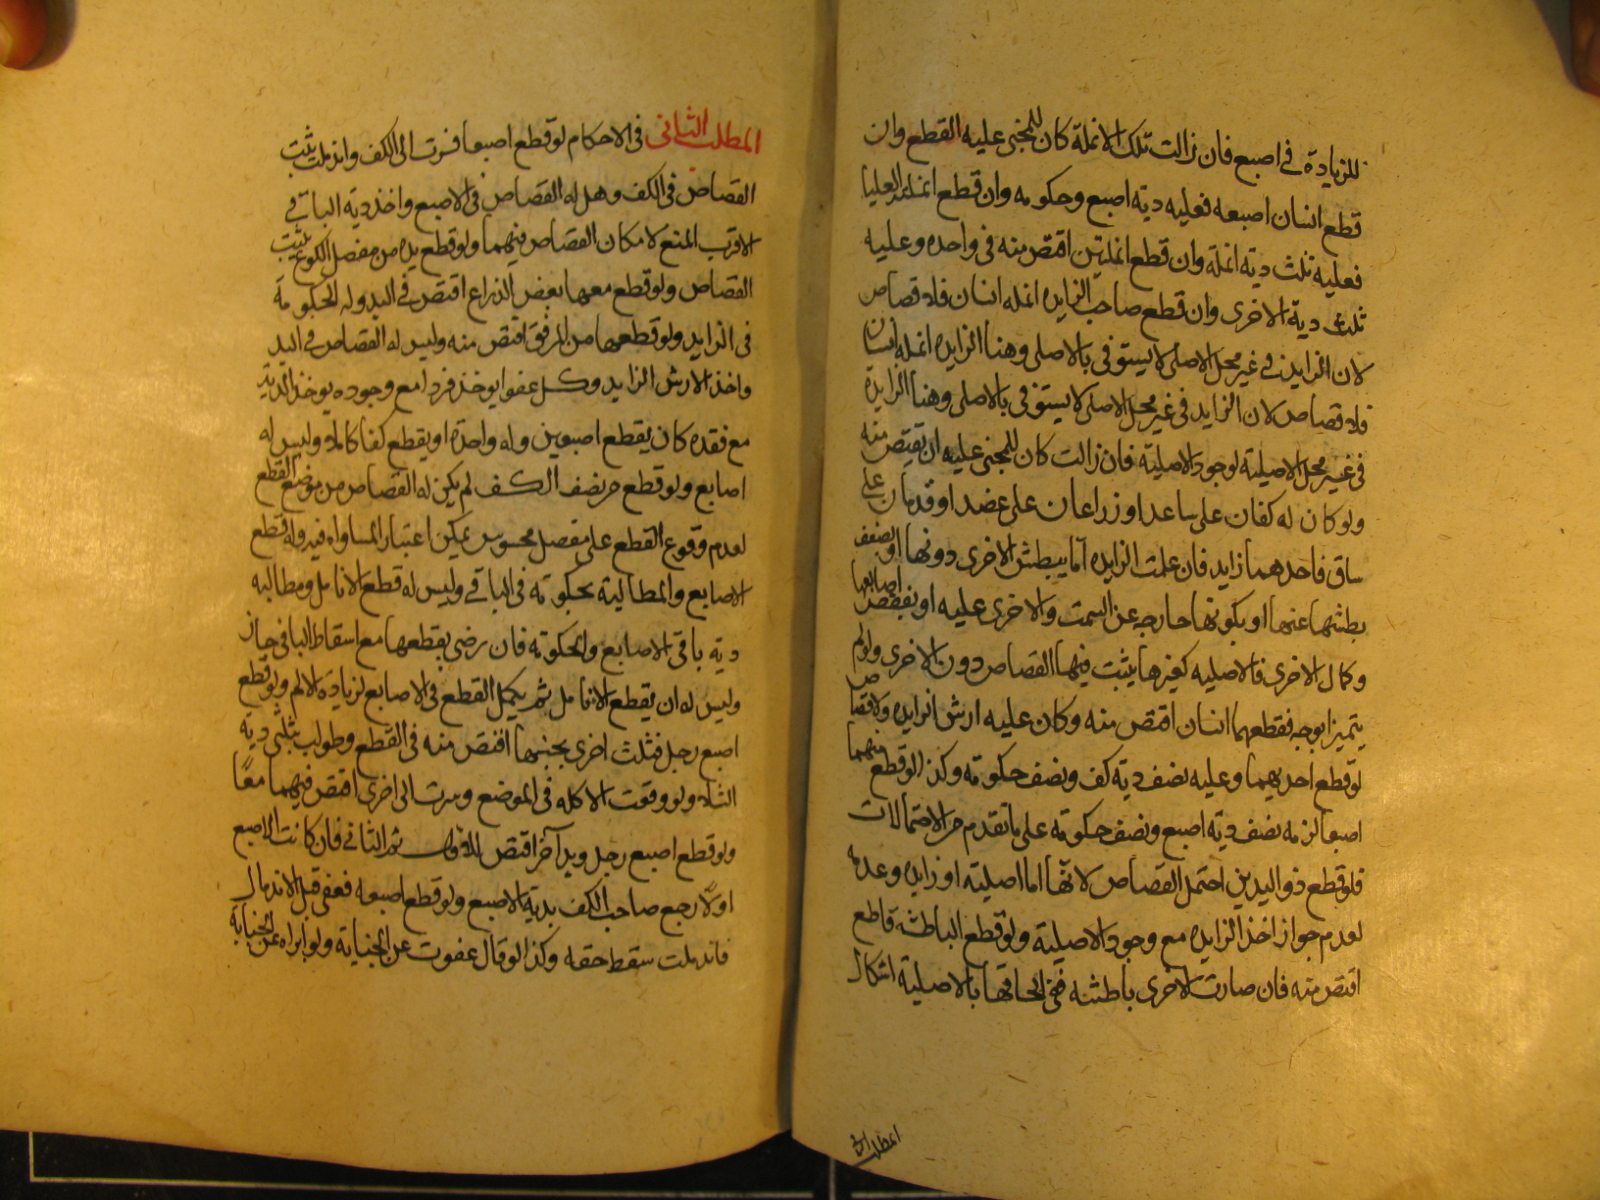 للزيادة في اصبع فان زالت تلك الانملة كان للمجنى عليه القطع وان
قطع انسان اصبعه فعليه دية اصبع وحكومه وان قطع انملته العليا
فعليه ثلث دية انملة وان قطع انملتين اقتص منه في واحده وعليه
ثلث دية الاخرى وان قطع صاحب الزايده انمله انسان فلا قصاص
لان الزايد في غير محل الاصلى لا يستوفى بالاصلى وهنا الزايده انملة انسان
فلا قصاص لان الزايد في غير محل الاصلى لا يستوفى بالاصلى وهنا الزايدة
في غير محل الاصلية لوجود الاصلية فان زالت كان للمجنى عليه ان يقتص منه
ولو كان له كفان على ساعد او زراعان على عضد او قدمان على
ساق فاحدهما زايد فان علمت الزايده اما يبطش الاخرى دونها او بضعف
بطشها عنها او بكونها خارجه عن السمت والاخرى عليه او بنقص اصابعها
وكمال الاخرى فالاصليه كغيرها يثبت فيها القصاص دون الاخرى ولو لم
يتميزا بوجه فقطعهما انسان اقتص منه وكان عليه ارش الزايده ولا قصاص
لو قطع احديهما وعليه نصف دية كف ونصف حكومة وكذا لو قطع منهما
اصبعا لزمه نصف دية اصبع ونصف حكومة على ما تقدم من الاحتمالات
فلو قطع ذو اليدين احتمل القصاص لانها اما اصلية او زايده وعدمه
لعدم جواز اخذ الزايده مع وجود الاصلية ولو قطع الباطشه قاطع
اقتص منه فان صارت الاخرى باطشه ففى الحاقها بالاصلية اشكال
المطلب الثانى فى الاحكام لو قطع اصبعا فسرت الى الكف واندملت ثبت
القصاص فى الكف وهل له القصاص فى الاصبع واخذ دية الباقي
الاقرب المنع لامكان القصاص فيهما ولو قطع يده من مفصل الكوع يثبت
القصاص ولو قطع معها بعض الذراع اقتص في اليد وله الحكومة
فى الزايد ولو قطعها من المرفق اقتص منه وليس له القصاص في اليد
واخذ الارش الزايد وكل عضو يوخذ فردا مع وجوده يوخذ الدية
مع فقده كان يقطع اصبعين وله واحدة او يقطع كفا كاملا وليس له
اصابع ولو قطع من نصف الكف لم يكن له القصاص من موضع القطع
لعدم وقوع القطع على مفصل محسوس يمكن اعتبار المساواه فيه وله قطع
الاصابع والمطالبة بحكومة في الباقي وليس له قطع الانامل ومطالبه
دية باقى الاصابع والحكومة فان رضى بقطعها مع اسقاط الباقى جاز
وليس له ان يقطع الانامل ثم يكمل القطع فى الاصابع لزيادة الالم ولو قطع
اصبع رجل فشلت اخرى بجنبها اقتص منه فى القطع وطولب بثلثى دية
الشلا ولو وقعت الاكله فى الموضع وسرت الى اخرى اقتص فيهما معًا
ولو قطع اصبع رجل ويد آخر اقتص للاول ثم للثانى فان كانت الاصبع
اولًا رجع صاحب الكف بدية الاصبع ولو قطع اصبعه فعفى قبل الاندمال
فاندملت سقط حقه وكذا لو قال عفوت عن الجناية ولو ابراه عن الجناية